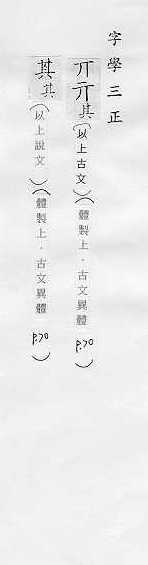 字學三正
丌亓其(以上古文)(體製上．古文異體 p.70)
其其(以上說文)(體製上．古文異體 p.70)